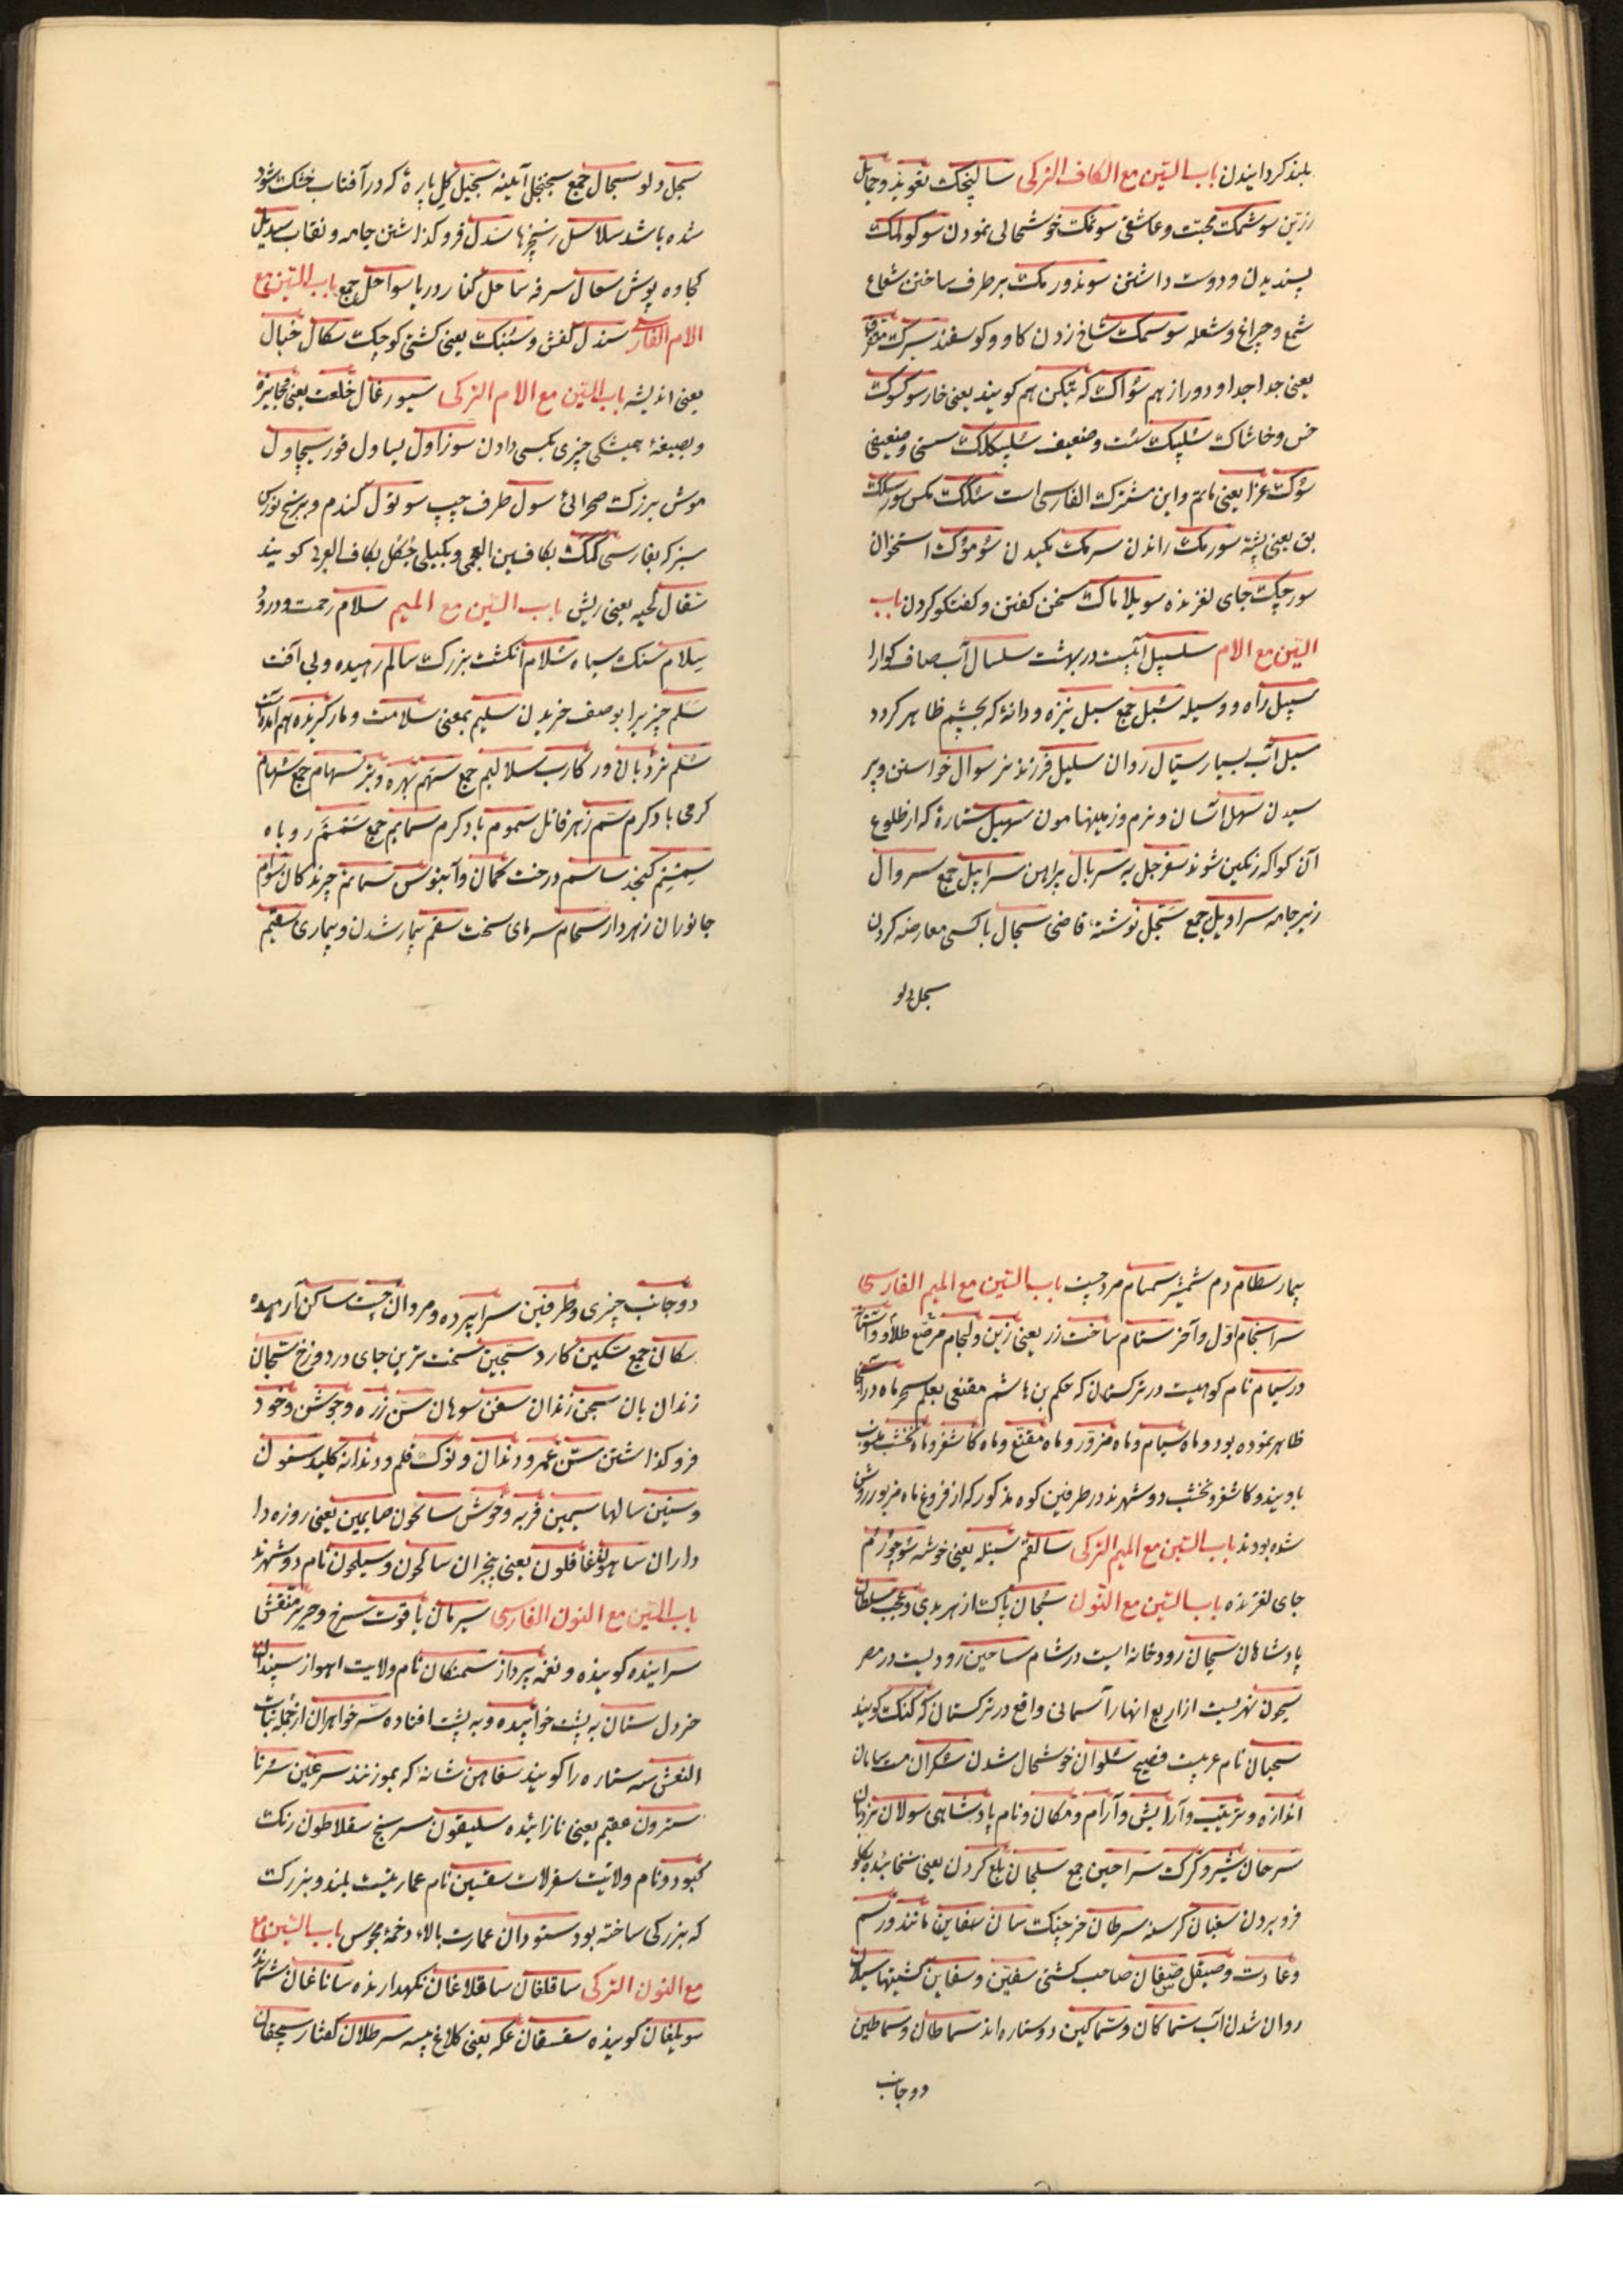 بلند کردانیدن باب السّین مع الکاف الترکی سالنجک تعوید و حمایل
زرّین سوشمک محبت و عاشقی سونمک خوشحالی نمودن سوکولمک
پسندیدن و دوست داشتن سوندورمک برطرف ساختن شعاع
شمع و چراغ و شعله سوسمک شاخ زدن کاو و کوسفند سیرک متفرق
یعنی جدا جدا و دور از هم سؤاک که تیکن هم کویند یعنی خار سوکسوک
خس و خاشاک سُلپیک سُست و ضعیف سُلپیکلک سستی و ضعیفی
سُوک عزا یعنی ماتم و این مشترک الفارسی است سُلکک مکس سورسلک
بق یعنی پشه سورمک راندن سرمک مکیدن سُومؤک استخوان
سورچک جای لغزنده سویلاماک سخن کفتن و کفتکو کردن باب
السّین مع الام سلسبیل آبیست در بهشت سلسال آب صاف کوارا
سبیل راه و وسیله سُبل جمع سبل نیزه و دانۀ که بچشم ظاهر کردد
سیل آب بسیار سیّال روان سلیل فرزند نر سوال خواستن و پر
سیدن سهل آسان و نرم و زمینها مون سهیل ستارۀ که از طلوع
آن کواکه رنکین شوند سفرجل به سربال پیراهن سرابیل جمع سروال
زیر جامه سراویل جمع سَجّل نوشتۀ قاضی سجال با کسی معارضه کردن
سجل دلو
سجل دلو سجال جمع سجنجل آیینه سجّیل کِل پارۀ که در آفتاب خشک شود
شده باشد سلاسل زنجیرها سَدل فرو کذاشتن جامه و نقاب سدیل
کجاوه پوش سعال سرفه ساحل کنار دریا سواحل جمع باب السّین مع
الام الفارسی سندل کفش و سُنبک یعنی کشتی کوچک سکال خیال
یعنی اندیشه باب السّین مع الام الترکی سیورغال خلعت یعنی جایزه
و بصیغۀ همیشکی چیزی بکسی دادن سوزاول یساول قور سیچاول
موش بزرک صحرائی سول طرف چپ سوتول کندم و برنج نورس
سبز که بفارسی کمک بکافین العجمی و بکیلی جُکُل بکاف العربی کویند
سقال لحیه یعنی ریش باب السّین مع المیم سلام رحمت و درود
سِلام سنک سیاه سُلام انکشت بزرک سالم رهیده و بی آفت
سَلَم چیزیرا بوصف خریدن سلیم بمعنی سلامت و مار کزیده هم آمده است
سُلّم نردبان ور کارب سلالیم جمع سَهم بهره و تیر سهام جمع سُهام
کرمی باد کرم سَم زهر قاتل سموم باد کرم سمایم جمع سَمسَم روباه
سِمسِم کنجد ساسم درخت کمان و آبنوس سمائم چرند کان سَوام
جانوران زهردار سحام سرمای سخت سقم بیمار شدن و بیماری سقیم
بیمار سطام دم شمشیر سمسام مرد چست باب السّین مع المیم الفارسی
سرانجام اوّل و آخر ستام ساخت زر یعنی زین و لجام مرصّع طلا و و آستانۀ
در سیام نام کوهیست در ترکستان که حکم بن هاشم مقنعی بعلم سحر ماه در آنجا
ظاهر نموده بود و ماه سیام و ماه مزوّر و ماه مقنّع و ماه کاشغر و ماه نخشب ملبوب
باویند و کاشغر و نخشب دو شهرند در طرفین کوه مذکور که از فروغ ماه مزبور روشن
شده بودند باب السّین مع المیم الترکی سالقم سنبله یعنی خوشه سُوچورُم
جای لغزنده باب السّین مع النّون سُبحان پاک است از هر بدی و عجب سلطان
پادشاهان سیحان رودخانه ایست در شام ساحین رودیست در مصر
سیحون نهریست از اربع انهار آسمانی واقع در ترکستان که کنک کویند
سحبان نام عربیست فصیح سُلوان خوشحال شدن سُکران مست سامان
اندازه و ترتیب و آرایش و آرام و مکان و نام پادشاهی سولان نردبان
سرحان شیر و کرک سراحین جمع سلجان بلع کردن یعنی نخاییده بکلو
فرو بردن سغبان کرسنه سرطان خرچنک سان سفاین مانند و رسم
و عادت و صیقل صیفان صاحب کشتی سفین و سفاین کشتیها سیلان
روان شدن آب سماکان و سماکین دو ستاره اند سماطان و سماطین
دو جانب
دو جانب چیزی و طرفین سراپرده و مردان چست ساکن آرمیده
سکان جمع سکّین کارد سجّین سخت ترین جای در دوزخ سجّان
زندان بان سجن زندان سفن سوهان سَن زره و جوشن و خود
فرو کذاشتن سنّ عمر و دندان و نوک قلم و دندانه کلید سنون
و سنین سالها سیمین فربه و خوش سائحون صایمین یعنی روزه دا
داران ساهون غافلون یعنی بیخبران سالحون و سیلحون نام دو شهرند
باب السّین مع النون الفارسی سیرمان یاقوت سرخ و حریر منقش
سراینده کوینده و نغمه پرداز سمنکان نام ولایت اهواز سپندان
خردل ستان به پشت خوابیده و به پشت افتاده سَرخواهران از جمله بنات
النعش سه ستاره را کویند سفاهن شانه که بموزنند سرغین سُرنا
سترون عقیم یعنی نازائیده سلیقون سرنج سقلاطون رنک
کبود و نام ولایت سقرلات سقسین نام عماریتست بلند و بزرک
که بزرکی ساخته بود ستودان عمارت بالاء دخمۀ مجوس باب السّین مع
مع النون الترکی ساقلغان ساقلاغان نکهدارنده ساناغان شمارنده
سویلغان کوینده سقسقان عکه یعنی کلاغ پیسه سرطلان کفتار سیچقان